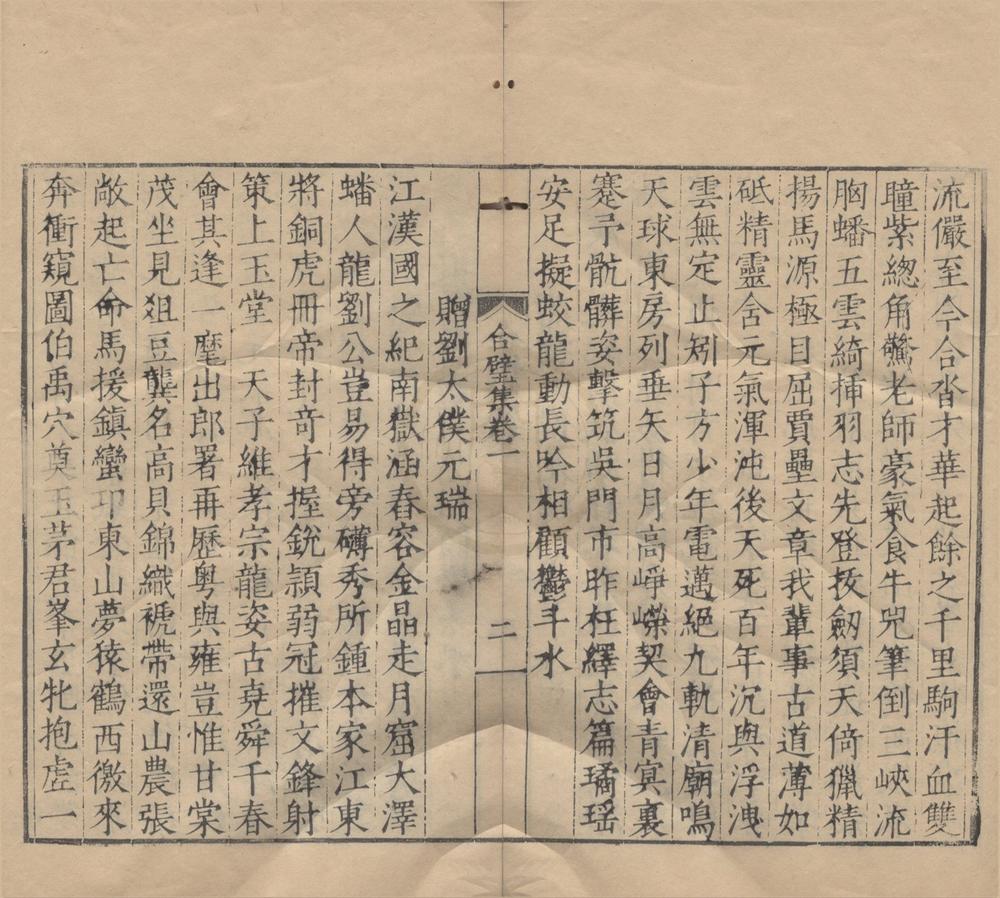 流儼至今合沓才華起餘之千里駒汗血雙
瞳紫總角驚老師豪氣食牛咒筆倒三峽流
胸蟠五雲綺揷羽志先登抜劒須天倚獵精
揚馬源極目屈賈壘文章我輩事古道薄如
砥精靈舍元氣渾沌後天死百年沉與浮洩
雲無定止矧子方少年電邁絕九軌清廟鳴
天球東房列垂矢日月高崢嶸契會青㝠裏
蹇予骯髒姿擊筑吳門市昨枉繹志篇璚瑶
安足擬蛟龍動長吟相顧鬱斗水
合璧集卷一
二
贈劉太僕元瑞
江漢國之紀南嶽涵春容金晶走月窟大澤
蟠人龍劉公豈易得旁礡秀所鍾本家江東
將銅虎冊帝封奇才握銳頴弱冠摧文鋒射
策上玉堂 天子維孝宗龍姿古堯舜千春
會其逢一麾出郎署再歷粤與雍豈惟甘棠
茂坐見俎豆龔名高貝錦織褫帶還山農張
敞起亡命馬援鎮蠻卭東山夢猿鶴西徼來
奔衝窺圖伯禹穴奠玉茅君峯玄牝抱虛一